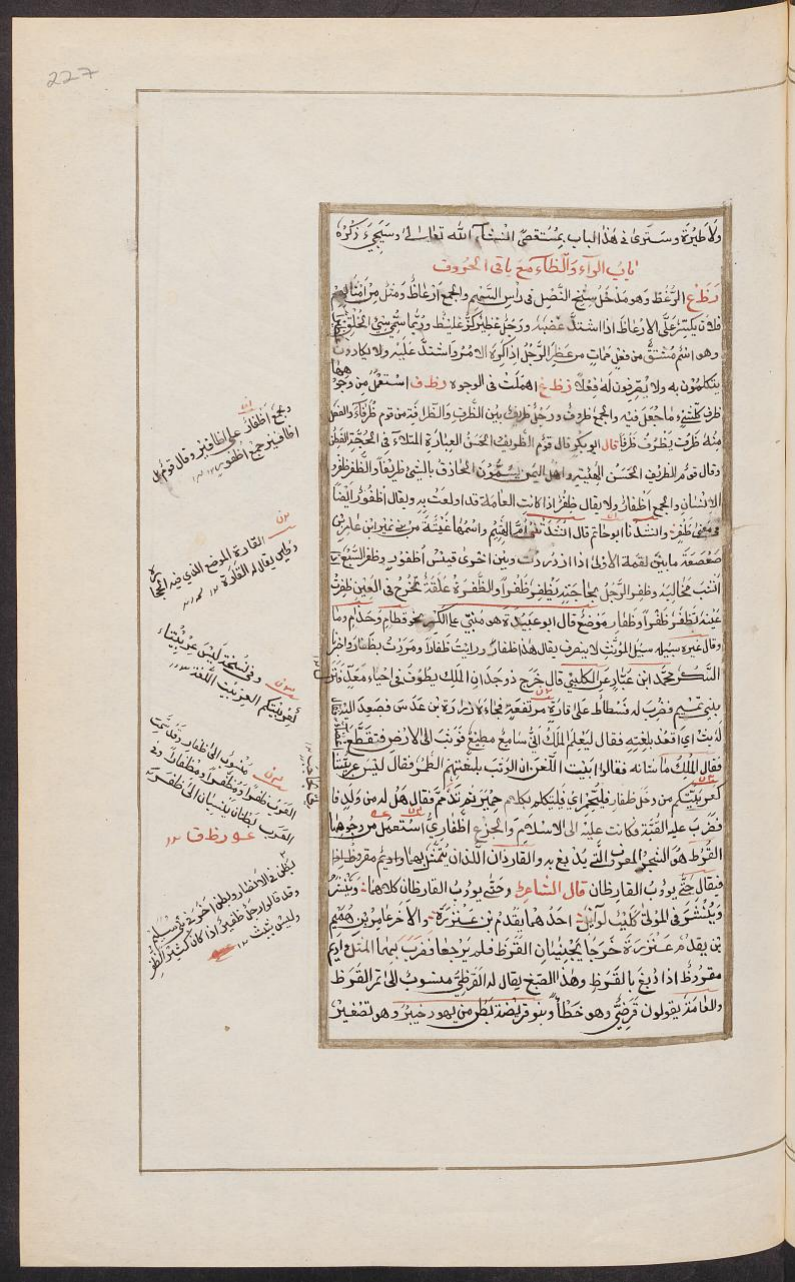 227
ولا طيرة وسترى فى هذا الباب مستقصى انشاء الله تعالى وسيجىء ذكره
باب الراء والظاء مع باقى الحروف
رظع الرُّعْظ وهو مدخل سنخ النصل فى راس السهم والجمع ارعاظ ومثل من امثالهم
فلان يكسر على الارعاظ اذا اشتد غضبه ورجل عظير كز غليظ وربما سمى سيئ الخلق
وهو اسم مشتق من فعل ممات من عظر الرجل اذا كره الامر واشتد عليه ولا يكادون
يتكلمون به ولا يصرفون له فعلا رظغ اهملت فى الوجوه رظف استعمل من وجوهها
ظرف كل شىء ما جعل فيه والجمع ظروف ورجل ظريف بين الظرف والظرافة من قوم ظرفاء والفعل
منه ظرف يظرف ظرفا قال ابو بكر قال قوم الظريف الحسن العبارة المتلافى الحجة
وقال قوم الظريف الحسن الهيئة واهل اليمن يسمون الحاذق بالشىء ظريفا والظفر ظفر
الانسان والجمع اظفار ولا يقال ظفر اذا كانت العامة قد اولعت به ويقال اظفور ايضا
فى معنى ظفر وانشدنا ابو حاتم قال انشدتنى ام الهيثم واسمها غيثة من بنى نمير ابن عامر بن
صعصعة ما بين لقمته الاولى اذا ازدردت وبين اخرى قيس اظفور وظفر السبع
انشب مخالبه وظفر الرجل بحاجته يظفر ظفرا والظفرة علقة تخرج فى العين ظفرت
عينه تظفر ظفرا وظفار موضع قال ابو عبيدة هو مبنى على الكسر نحو قطام وحذام وما
وقال غيره سبيله سبيل المؤنث لا ينصرف يقال هذا ظفار ورايت ظفار ومررت بظفار واخبرنا
السكن محمد ابن عباد عن الكلبى قال خرج ذو جدن الملك يطوف فى احياء معد فنزل
ببنى تميم فضرب له فسطاط على قارة مرتفعة فجاءه زرارة بن عدس فصعد اليه
له ثب اى اقعد بلغته فقال ليعلم الملك انى سامع مطيع فوثب الى الارض فتقطع
فقال الملك ما شانه فقالوا ابيت اللعن ان الوثب بلغتهم الطمر فقال ليس عربيتنا
كعربيتكم من دخل ظفار فليحمر اى فليتكلم بكلام حمير ثم تذمم فقال هل له من ولد فا
فضرب عليه القبة فكانت عليه الى الاسلام والجزع اظفارى استعمل من وجوهها
القرظ هو الشجر المعروف التى يدبغ به والقارظان اللذان يتمثل بهما واديم مقروظ
فيقال حتى يؤوب القارظان قال الشاعر وحتى يؤوب القارظان كلاهما وينشر
وينشر فى الموتى كليب لوائل احدهما يقدم بن عنزة والاخر عامر بن هميم
بن يقدم عنزة خرجا يجتنيان القرظ فلم يرجعا فضرب بهما المثل واديم
مقروظ اذا دبغ بالقرظ وهذا الصبغ يقال له القرظى منسوب الى ثمر القرظ
والعامة يقولون قرضى وهو خطأ وبنو قريضة بطن من يهود خيبر وهو تصغير
وجمع اظفار على اظافير وقال قوم بل
اظافير جمع اظفور
القارة الموضع الذى فيه الحجارة
وطين يقال له القارة
وفى نسخة ليس عربيتنا
كعربيتكم العربيت اللغة
منسوب الى ظفار وقد سمت
العرب ظفرا ومظفرا ومظفارا وفى
العرب بطنان ينسبان الى ظفر
عورظق
بطن فى الانصار وبطن اخر فى بنى سليم
وقد قالوا رجل ظفير اذا كان كثير الظفر
وليس بثبت